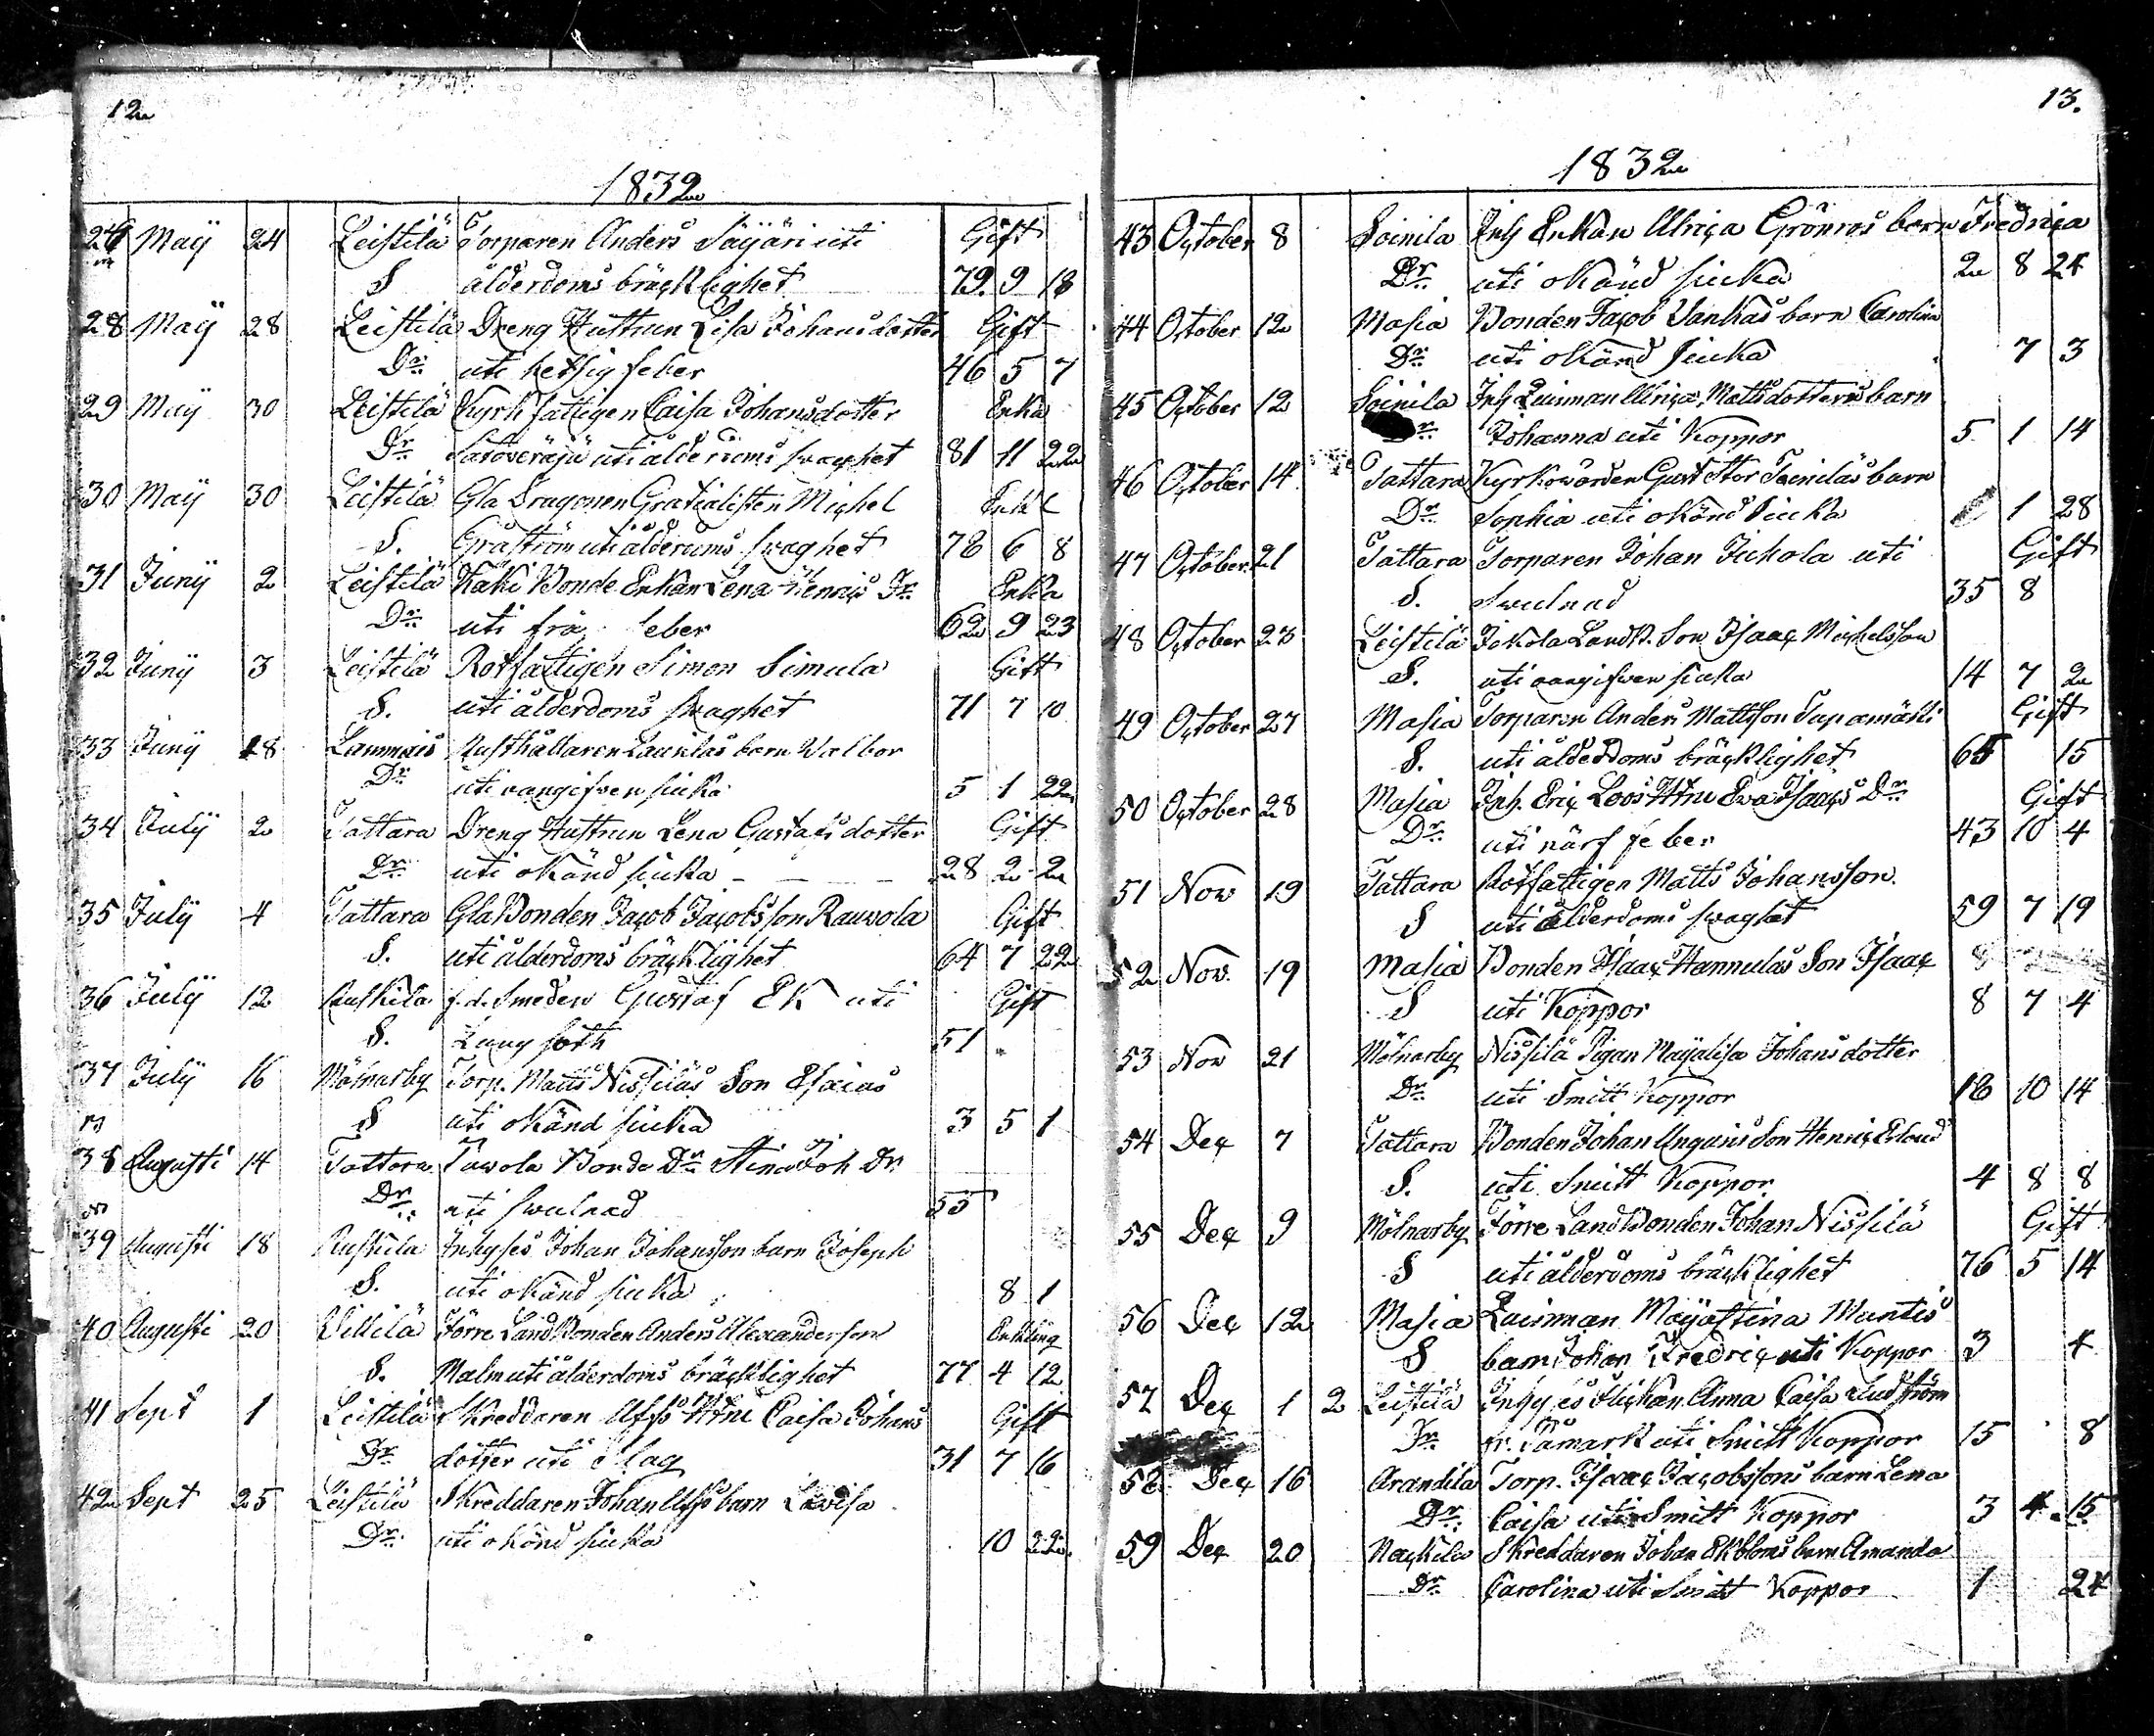 12
1832
May 24 Leistilä Torparen Anders Säyäri uti Gift
S ålderdoms bräcklighet 79. 9 18
28 May 28 Leistilä Dreng Hustrun Lisa Johansdotter Gift
Dr uti hetsig feber 46 5 7
29 May 30 Leistilä Kyrkfattigen Caisa Johansdotter Enka
Dr uti ålderdoms swaghet 81 11 22
30 May 30 Leistilä Gla Dragonen Gratialisten Michel Enkl
S. Gråström uti ålderdoms swaghet 78 6 8
31 Juny 2 Leistilä Käki Bonde Enkan Lena Henrics Dr Enka
Dr uti feber 62 9 23
32 Juny 3 Leistilä Rotfattigen Simon Simula Gift
S. uti ålderdoms swaghet 71 7 10
33 Juny 18 Lammais Rusthållaren Laurilas barn Walbor
Dr uti oangifven siuka 5 1 22
34 July 2 Tattara Dreng Hustrun Lena Gustafsdotter Gift
Dr uti okänd siuka 28 2 2
35 July 4 Tattara Gla Bonden Jacob Jacobsson Rauvola Gift
S. uti ålderdoms bräcklighet 64 7 22
36 July 12 Ruskila f.d. Smeden Gustaf Ek uti Gift
S. Lungsoth 51
37 July 16 Mölnarby Torp. Matts Nissiläs Son Esaias
S uti okänd siuka 3 5 1
38 Augusti 14 Tattara Tawola Bonde Dr Stina Joh Dr
Dr uti swulnad 55
39 Augusti 18 Ruskila Inhyses Johan Johansson barn Joseph
S. uti okänd siuka 8 1
40 Augusti 20 Villilä Förre Landbonden Anders Alexandersson Enkling
S. Malm uti ålderdoms bräcklighet 77 4 12
41 Sept 1 Leistilä Skreddaren Ulfs Hru Caisa Johans Gift
Dr dotter uti Slag 31 7 16
42 Sept 25 Leistilä Skreddaren Johan Ulfs barn Lovisa
Dr uti okänd siuka 10 22
13.
1832
43 October 8 Soinila Inh Enkan Ulrica Grönros barn Fredrica
Dr uti okänd siuka 2 8 24
44 October 12 Masia Bonden Jacob Vankas barn Carolina
Dr uti okänd siuka 7 3
45 October 12 Soinila Inh Quinnan Ulrica Mattsdotters barn
Dr Johanna uti Koppor 5 1 14
46 October 14 Tattara Kyrkowärden Gust Stor barn
Dr Sophia uti okänd siuka 1 28
47 October 21 Tattara Torparen Johan Juhola uti Gift
S. Swulnad 35 8
48 October 23 Leistilä Jokola Landb. Son Isaac Michelsson
S. uti oangifwen siuka 14 7 2
49 October 27 Masia Torparen Anders Mattsson Tupamäki Gift
S. uti ålderdoms bräcklighet 65 15
50 October 28 Masia Inh. Eric Loos Hru Eva Isaacs Dr Gift
Dr uti närf feber 43 10 4
51 Nov 19 Tattara Rotfattigen Matts Johansson
S uti ålderdoms swaghet 59 7 19
52 Nov. 19 Masia Bonden Isaac Hannulas Son Isaac
S uti Koppor 8 7 4
53 Nov 21 Mölnarby Nissilä Pigan Mayalisa Johansdotter
Dr uti Smitt Koppor 18 10 14
54 Dec 7 Tattara Bonden Johan Ungaris Son Henric Erland
S. uti Smitt Koppor 4 8 8
55 Dec 9 Mölnarby Förre Landbonden Johan Nissilä Gift
S uti ålderdoms bräcklighet 76 5 14
56 Dec 12 Masia Quinnan Mayastina Muntis
S barn Johan Fredric uti Koppor 3 4
57 Dec 12 Leistilä Inhyses Flickan Anna Caisa
Dr fr. Påmark uti Smitt Koppor 15 8
58 Dec 16 Arandila Torp. Isaac Jacobssons barn Lena
Dr. Caisa uti Smitt Koppor 3 4 15
59 Dec 20 Nackila Skreddaren Johan Ekbloms barn Amanda
Dr Carolina uti Smitt Koppor 1 24